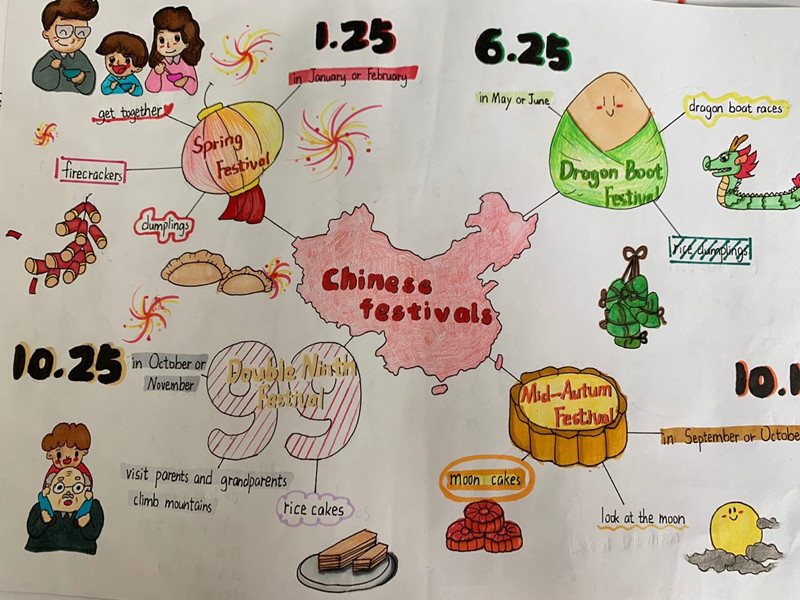 1.25
in January or February
get together
Spring
Festival
firecrackers
dumplings
6.25
in May or June
dragon boat races
Dragon Boat
Festival
rice dumplings
Chinese
festivals
10.25
in October or
November
Double Ninth
Festival
99
visit parents and grandparents
climb mountains
rice cakes
10.1
Mid-Autum
Festival
in September or Octobe
moon cakes
look at the moon